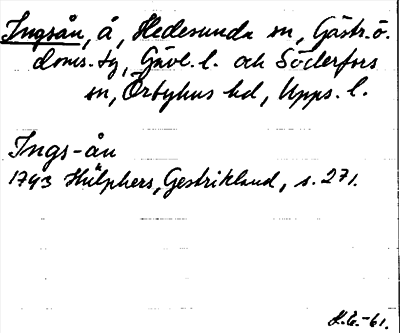 Ingsån, å, Hedesunda sn, Gästr. ö.
doms. tg, Gävl. l. och Söderfors
sn, Örbyhus hd, Upps. l.
Ings-ån
1793 Hülphers, Gestrikland, s. 271.
K.E.-61.